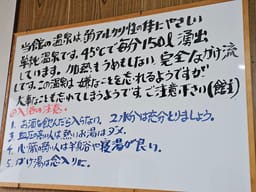 当館の温泉は弱アルカリ性の体にやさしい
単純温泉です。45℃で毎分150ℓ湧出
しています。加熱もうめもしない完全なかけ流
しです。この温泉は嫌なことを忘れるようですが
大事なことも忘れてしまうようです。ご注意下さい(館主)
入浴の注意。
1. お酒を飲んだら入らない。2時間は充分とりましょう。
2. 血圧の高い人は熱いお湯はダメ。
4. 心臓の弱い人は半身浴や寝湯が良い。
5. かけ湯は念入りに。